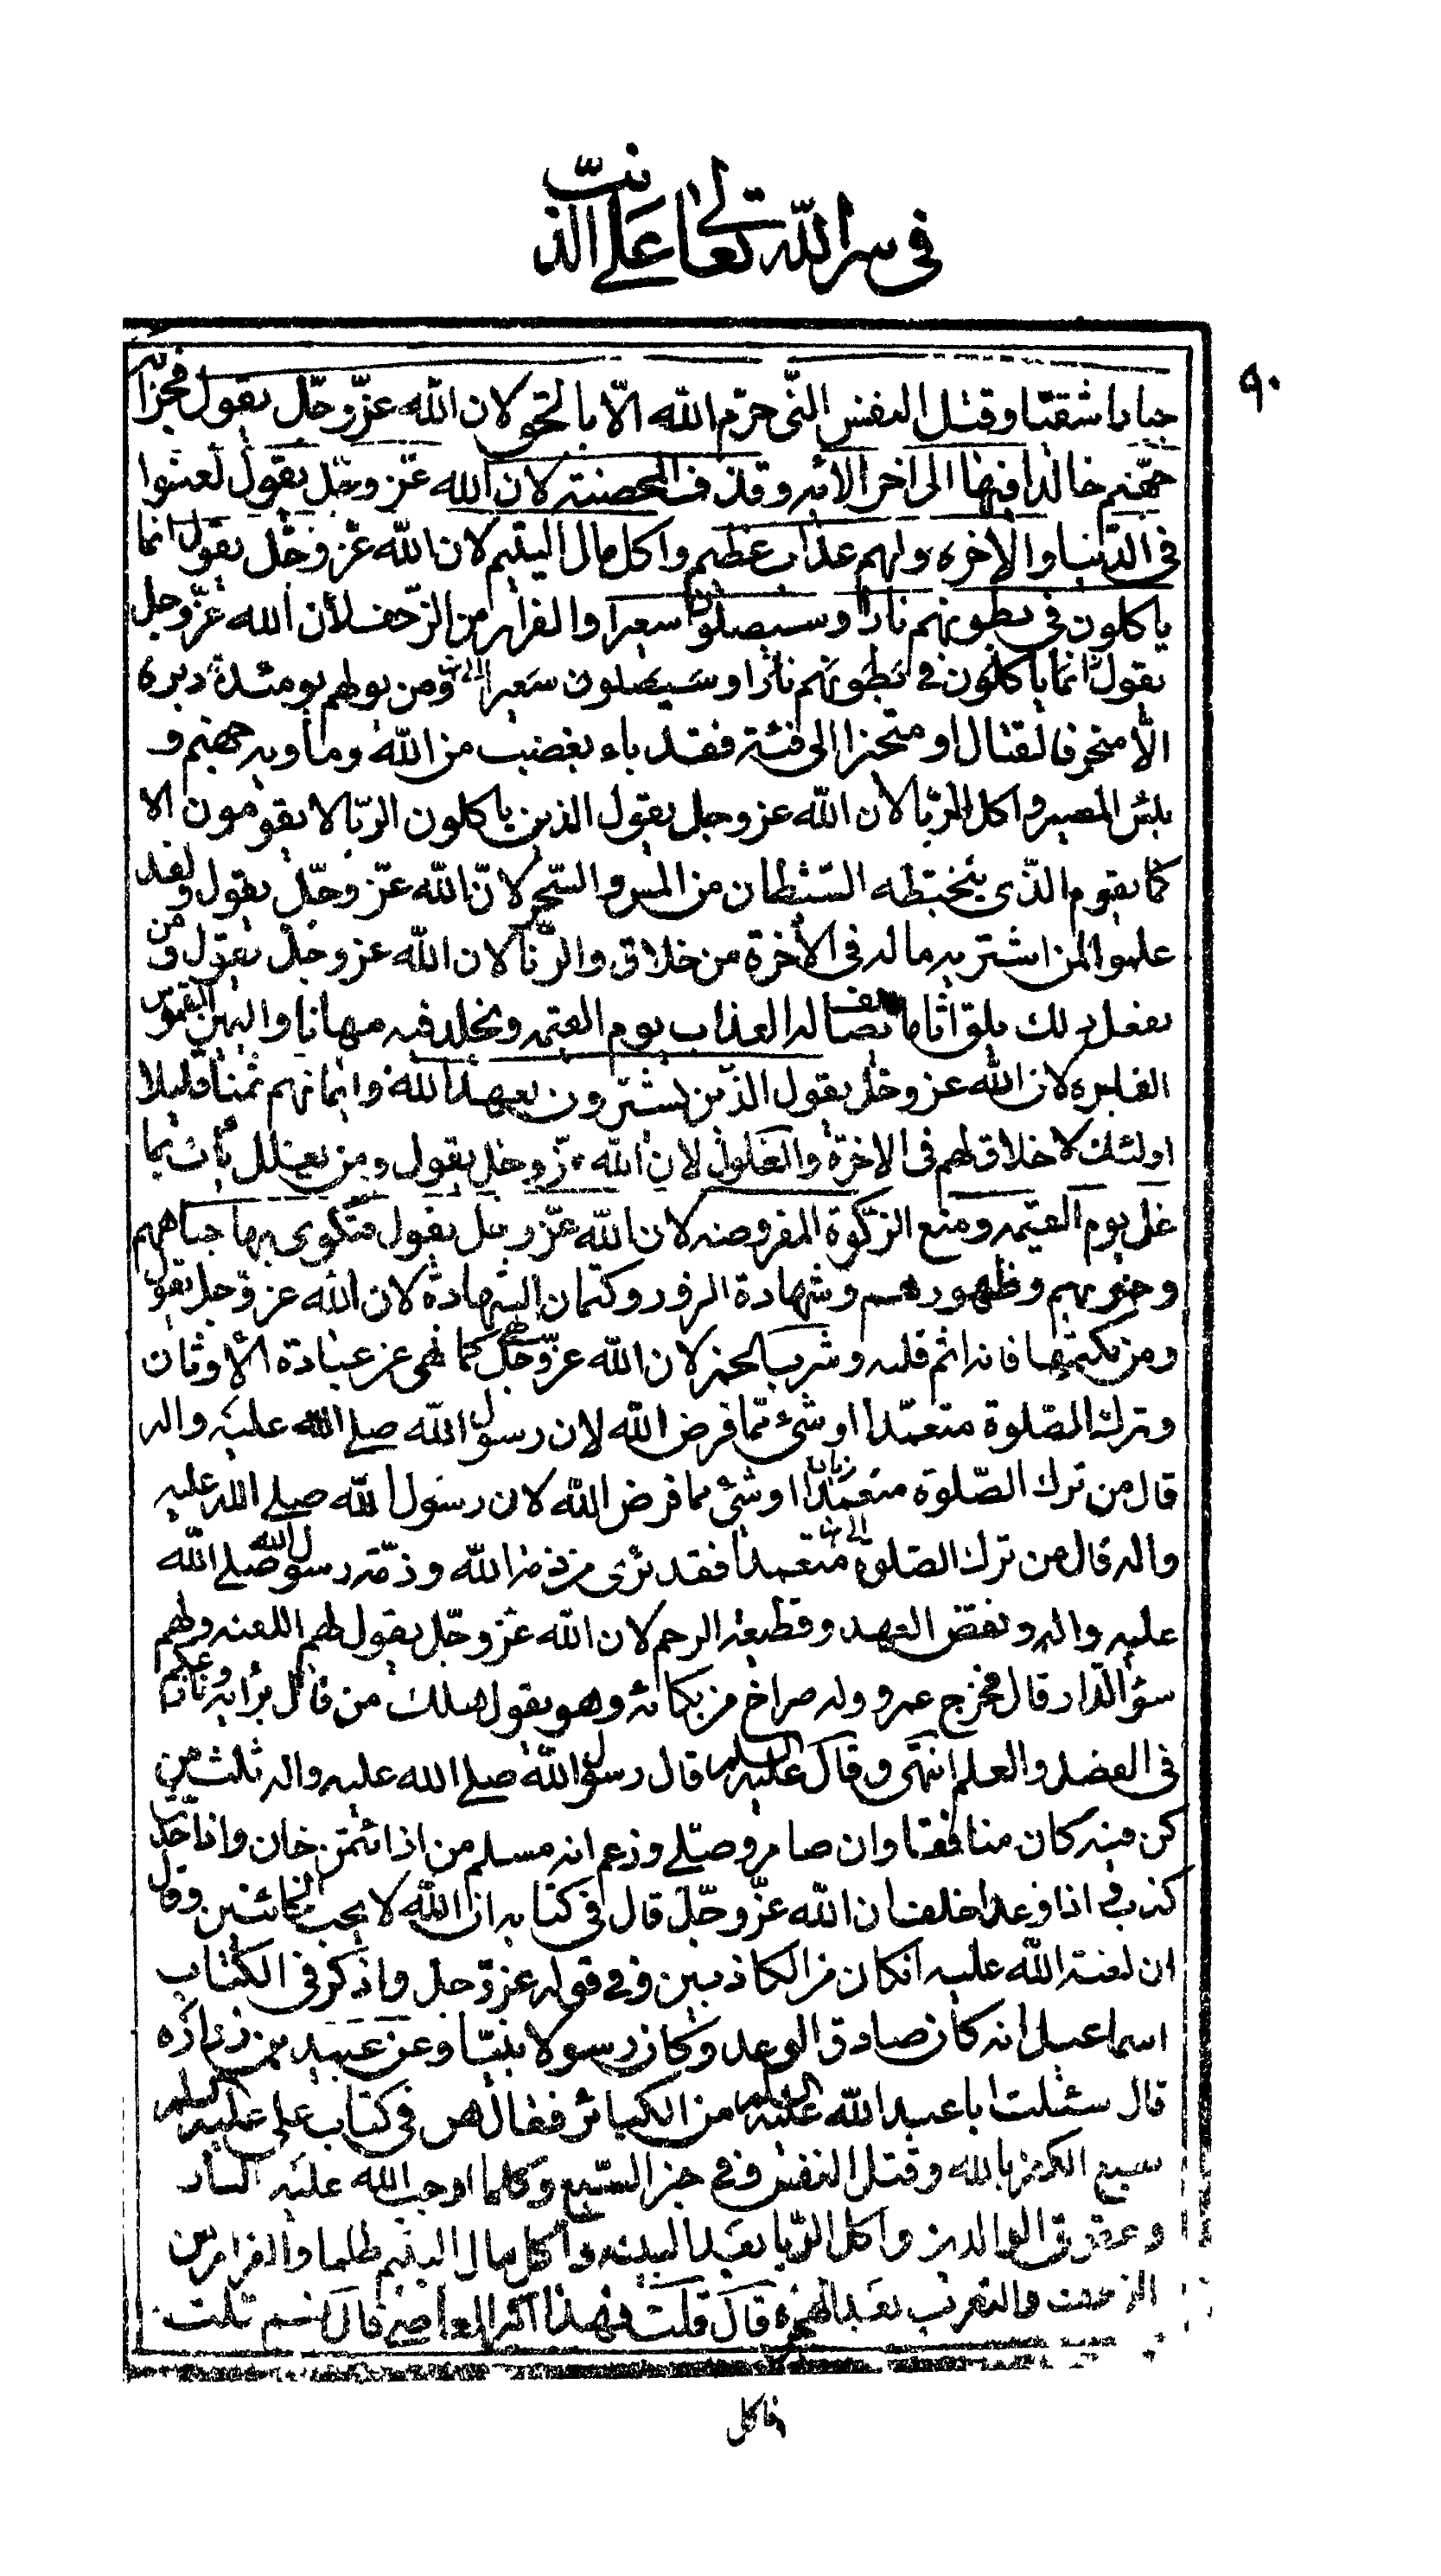 في ستر الله تعالى على المذنب
٩٠
جبارا شقيّا وقتل النفس الّتي حرّم الله الّا بالحق لان الله عزّ وجلّ يقول فجزاؤه
جهّنم خالدا فيها الى اخر الايه وقذف المحصنته لان الله عزّ وجلّ يقول لعنوا
في الدّنيا والاخره ولهم عذاب عظيم واكل مال اليتيم لان الله عزّ وجلّ يقول انما
ياكلون في بطونهم نارا وسيصلون سعيرا والفرار من الزّحف لأن الله عزّ وجل
يقول انما ياكلون في بطونهم نارا وسيصلون سعيرا ومن يولهم يومئذ دبره
الّا متحرفا لقتال او متحيزا الى فئته فقد باء بغضب من الله وماويه جهنم و
بئس المصير واكل الرّبا لان الله عز وجل يقول الذين ياكلون الرّبا لا يقومون الا
كما يقوم الّذي يتخبّطه الشّيطان من المس والسّحر لانّ الله عزّ وجلّ يقول ولقد
علموا لمن اشتريه ماله في الاخرة من خلاق والزّنا لان الله عز وجل يقول ومن
يفعل ذلك يلق اثاما يضاعف له العذاب يوم القيمه ويخلد فيه مهانا واليمين الغموس
الفاجره لان الله عز وجل يقول الذين يشترون بعهد الله وايمانهم ثمنا قليلا
اولئك لا خلاق لهم في الاخرة والغلول لان الله عزّ وجل يقول ومن يغلل يأت بما
غل يوم القيمه ومنع الزّكوة المفروضه لان الله عزّ وجل يقول فتكوى بها جباههم
وجنوبهم وظهورهم وشهادة الزور وكتمان الشهادة لان الله عز وجل يقول
ومن يكتمها فانه اثم قلبه وشرب الخمر لان الله عزّ وجلّ نهى كما نهى عن عبادة الاوثان
وترك الصّلوة متعمّدا او شئ ممّا فرض الله لان رسول الله صلى الله عليه واله
قال من ترك الصّلوة متعمّدا او شئ مما فرض الله لان رسول الله صلى الله عليه
واله قال من ترك الصّلوة متعمدا فقد برى من ذمة الله وذمّة رسول الله صلى الله
عليه واله ونقض العهد وقطيعة الرحم لان الله عزّ وجلّ يقول لهم اللعنه ولهم
سؤ الدّار قال فخرج عمرو وله صراخ من بكائه وهو يقول هلك من قال برايه ونازعكم
في الفضل والعلم انتهى وقال عليه السلم قال رسول الله صلى الله عليه واله ثلث من
كن فيه كان منافقا وان صام وصلّى وزعم انه مسلم من اذا ائتمن خان واذا حدّث
كذب واذا وعد اخلف ان الله عزّ وجلّ قال في كتابه ان الله لا يحب الخائنين وقال
ان لعنة الله عليه ان كان من الكاذبين وفي قوله عز وجل واذكر في الكتاب
اسماعيل انه كان صادق الوعد وكان رسولا نبيّا وعن عبيد بن زراره
قال سئلت ابا عبد الله عليه السلم من الكبائر فقال هن في كتاب علي عليه السلم
سبع الكفر بالله وقتل النفس وعقوق الوالدين واكل الرّبا بعد البينه واكل مال اليتيم ظلما والفرار من
الزحف والتعرب بعد الهجره قال قلت فهذا اكبر المعاصي قال نعم قلت
فاكل